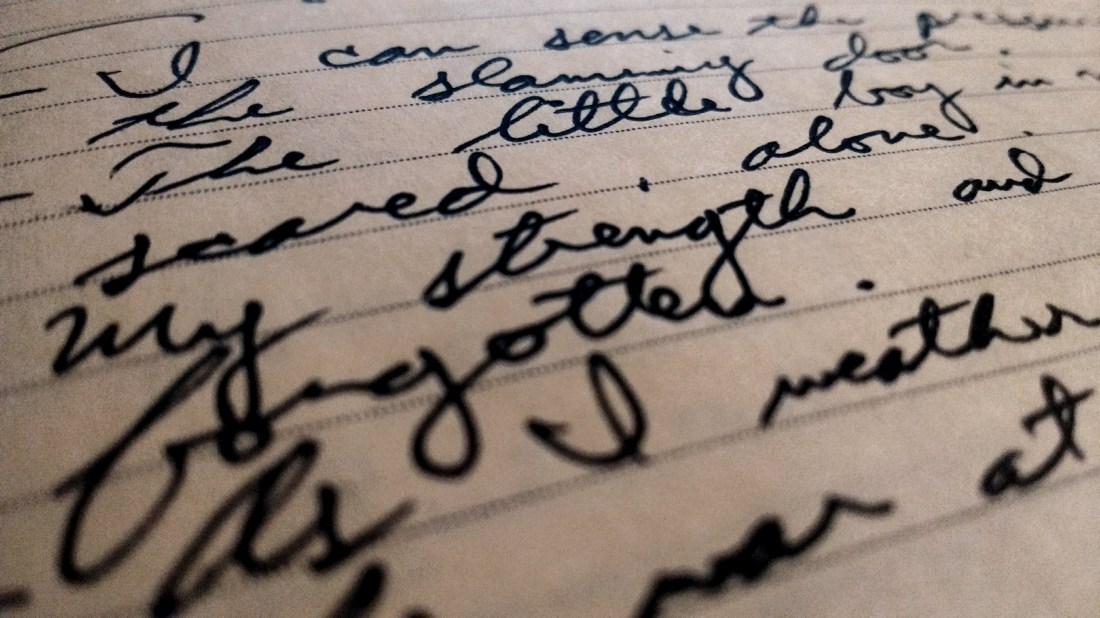 I can sense the
the slamming door
The little boy in
scared. alone.
My strength and
forgotten.
As I
at